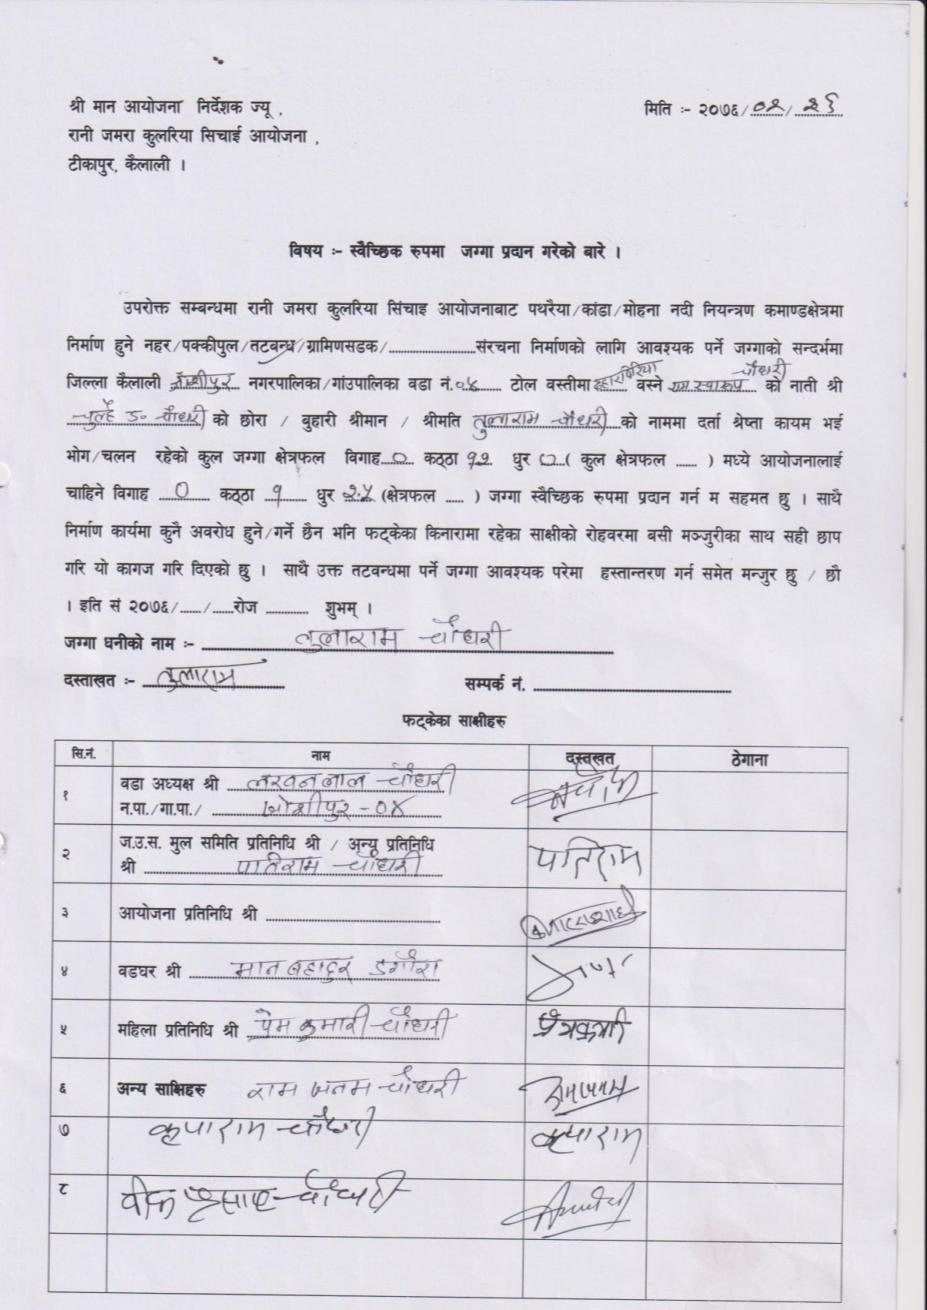 श्री मान आयोजना निर्देशक ज्यू ,
मिति :- २०७६/०२/२६
रानी जमरा कुलरिया सिचाई आयोजना ,
टीकापुर, कैलाली ।
विषय :- स्वैच्छिक रुपमा जग्गा प्रदान गरेको बारे ।
उपरोक्त सम्बन्धमा रानी जमरा कुलरिया सिंचाइ आयोजनाबाट पथरैया/कांडा/मोहना नदी नियन्त्रण कमाण्डक्षेत्रमा
निर्माण हुने नहर/पक्कीपुल/तटबन्ध/ग्रामिणसडक/....................संरचना निर्माणको लागि आवश्यक पर्ने जग्गाको सन्दर्भमा
जिल्ला कैलाली जोशीपुर नगरपालिका/गांउपालिका वडा नं.०४ टोल वस्तीमा वस्ने राम स्वारूप चौधरी को नाती श्री
चौधरी को छोरा / बुहारी श्रीमान / श्रीमति तुलाराम चौधरी को नाममा दर्ता श्रेष्ता कायम भई
भोग/चलन रहेको कुल जग्गा क्षेत्रफल विगाह ० कठ्ठा १२ धुर ० ( कुल क्षेत्रफल ...... ) मध्ये आयोजनालाई
चाहिने विगाह ० कठ्ठा १ धुर २.५ (क्षेत्रफल ..... ) जग्गा स्वैच्छिक रुपमा प्रदान गर्न म सहमत छु । साथै
निर्माण कार्यमा कुनै अवरोध हुने/गर्ने छैन भनि फट्केका किनारामा रहेका साक्षीको रोहवरमा वसी मञ्जुरीका साथ सही छाप
गरि यो कागज गरि दिएको छु । साथै उक्त तटवन्धमा पर्ने जग्गा आवश्यक परेमा हस्तान्तरण गर्न समेत मन्जुर छु / छौ
। इति सं २०७६/....../......रोज ............ शुभम् ।
जग्गा धनीको नाम :- तुलाराम चौधरी
दस्ताखत :- तुलाराम सम्पर्क नं. ........................
फट्केका साक्षीहरु
सि.नं. नाम दस्तखत ठेगाना
१ वडा अध्यक्ष श्री लखनलाल चौधरी
न.पा./गा.पा./ जोशीपुर - ०४
२ ज.उ.स. मुल समिति प्रतिनिधि श्री / अन्य प्रतिनिधि
श्री पातिराम चौधरी पातिराम
३ आयोजना प्रतिनिधि श्री ........................
४ वडघर श्री मान बहादुर डगौरा
५ महिला प्रतिनिधि श्री प्रेम कुमारी चौधरी
६ अन्य साक्षिहरु राम चौधरी
७ कृपाराम चौधरी कृपाराम
८ प्रसाद चौधरी